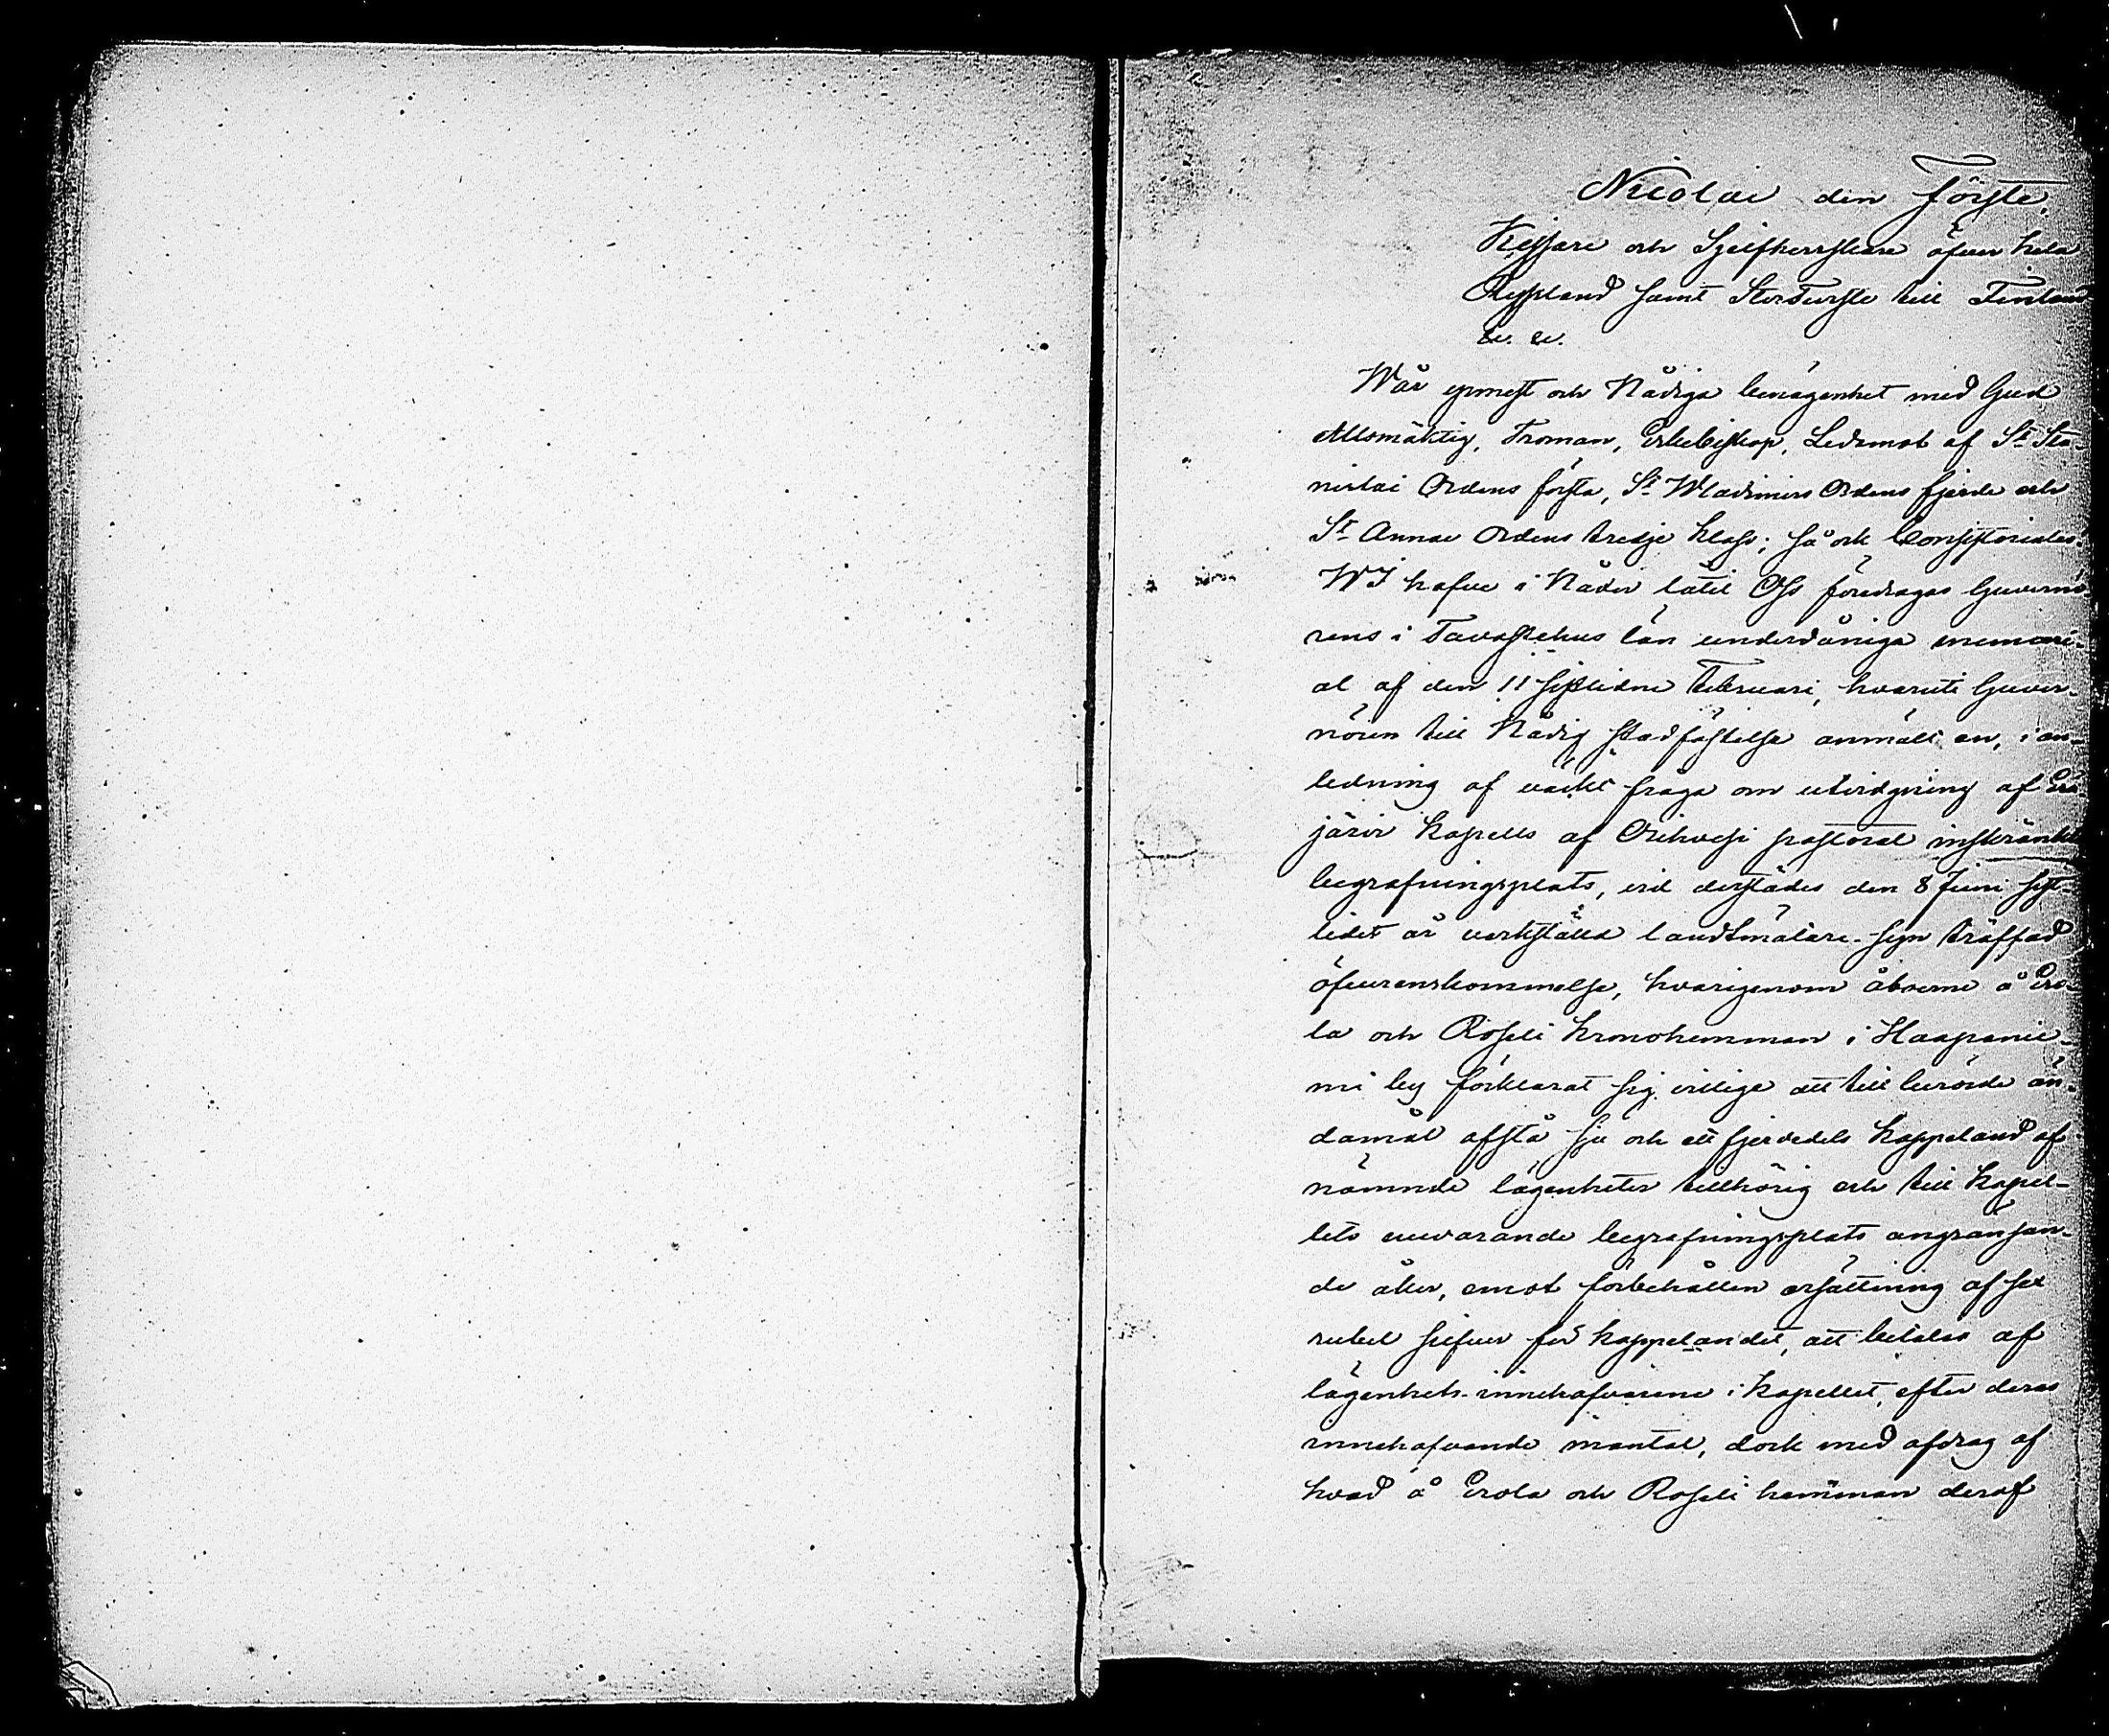 Nicolai den förste,
Kejsare och Sjelfherrskare öfver hela
Ryssland samt Storfurste till Finland
&c. &c.
Wår ynnest och Nådiga benägenhet med Gud
Allsmäktig, Troman, Erkebiskop, Ledamot af St Sta-
nislai Ordens första, St Wladimirs Ordens fjerde och
St Annae Ordens tredje klass; så ock Consistoriales.
WI hafve i Nåder låtit Oss föredragas Guvernö-
rens i Tavastehus län underdåniga memori-
al af den 11 sistlidne Februari, hvaruti Guver-
nören till Nådig stadfästelse anmält en, i an-
ledning af väckt fråga om utvidgning af Erä-
järvi kapells af Orihvesi pastorat inskränkta
begrafningsplats, vid derstädes den 8 Juni sist-
lidet år verkställd landtmätare-syn träffad
öfverenskommelse, hvarigenom åboerne å Ero-
la och Roseli kronohemman i Haapanie-
mi by förklarat sig villige att till berörde än-
damål afstå sju och ett fjerdedels kappeland af
nämnde lägenheter tillhörig och till kapel-
lets nuvarande begrafningsplats angränsan-
de åker, emot förbehållen ersättning af sex
rubel silfver för kappelandet, att betalas af
lägenhets-innehafvarene i kapellet, efter deras
innehafvande mantal, dock med afdrag af
hvad å Erola och Roseli hemman deraf